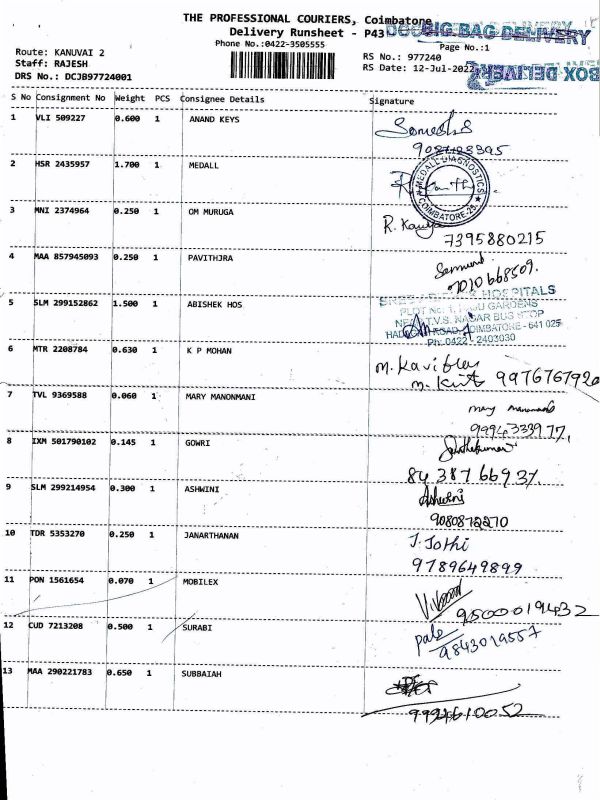 THE PROFESSIONAL COURIERS, Coimbatore
Delivery Runsheet - P43
BIG BAG DELIVERY
Phone No.:0422-3505555
Page No.:1
Route: KANUVAI 2
RS No.: 977240
Staff: RAJESH
RS Date: 12-Jul-2022
BOX DELIVERY
DRS No.: DCJB97724001
S No Consignment No Weight PCS Consignee Details Signature
1 VLI 509227 0.600 1 ANAND KEYS
2 HSR 2435957 1.700 1 MEDALL
MEDALL DIAGNOSTICS
COIMBATORE-25
3 MNI 2374964 0.250 1 OM MURUGA
R. Kavya
7395880215
4 MAA 857945093 0.250 1 PAVITHJRA
7010668509.
5 SLM 299152862 1.500 1 ABISHEK HOS
HOSPITALS
GARDENS
T.V.S. NAGAR BUS STOP
ROAD, COIMBATORE - 641 025
Ph:0422 2403030
6 MTR 2208784 0.630 1 K P MOHAN
9976767920
7 TVL 9369588 0.060 1 MARY MANONMANI
mary
9994333977,
8 IXM 501790102 0.145 1 GOWRI
84 387 66937.
9 SLM 299214954 0.300 1 ASHWINI
Ashwini
9080872270
10 TDR 5353270 0.250 1 JANARTHANAN
J. Jothi
9789649899
11 PON 1561654 0.070 1 MOBILEX
9500019432
12 CUD 7213208 0.500 1 SURABI
9843019557
13 MAA 290221783 0.650 1 SUBBAIAH
9994610052